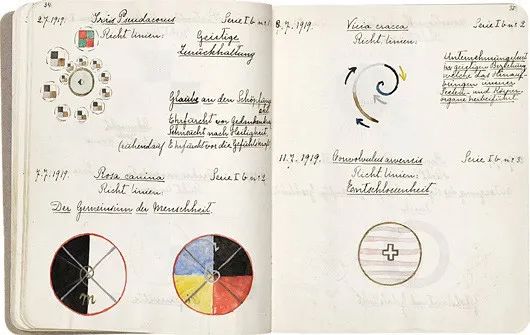 34.
2.7.1919. Iris Pseudacorus Serie I b nr 1
Richtlinien: Geistige
Zurückhaltung
Glaube an den Schöpfung
an
Ehrfurcht vor
Sehnsucht nach Heiligkeit
Ehrfurcht vor die
7.7.1919. Rosa canina Serie I b nr 2
Richtlinien:
Der Gemeinsinn der Menschheit.
m
35.
8.7.1919. Vicia cracca Serie I b nr 2
Richtlinien:
Unternehmungslust
in geistiger Begleitung
welche das
unserer
Seelen- und Körper-
organe herbeiführt.
11.7.1919. Convolvulus arvensis Serie I b nr 3
Richtlinien:
Entschlossenheit